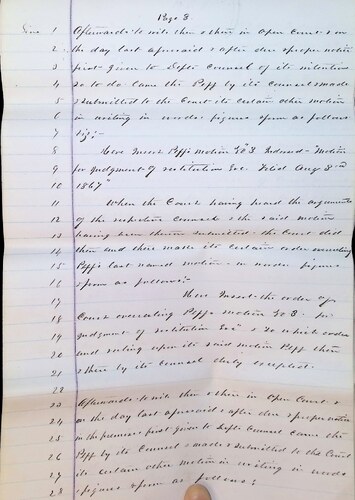 Page 3
Line 1 Afterwards to wit then & there in open Court & on
2 the day last aforesaid & after due & proper notice
3 first given to Defts Counsel of its intention
4 so to do came the Plff by its Counsel & made
5 & submitted to the Court its certain other motion
6 in writing in words & figures & form as follows
7 viz:-
8 Here Insert Plffs motion No 3 Indorsed - Motion
9 for Judgment of restitution &c. Filed Aug 3rd
10 1867"
11 When the Court having heard the arguments
12 of the respective Counsel & the said motion
13 having been there submitted - the Court did
14 then and there make its certain order overruling
15 Plffs last named motion - in words figures
16 & form as follows:-
17 Here Insert - the order of
18 Court overruling Plffs motion No 3. for
19 Judgment of restitution &c" & to which order
20 and ruling upon its said motion Plff then
21 & there by its Counsel duly excepted.
22
23 Afterwards to wit then & there in open Court &
24 on the day last aforesaid & after due & proper notice
25 in the premises first given to Defts Counsel came the
26 Plff by its Counsel & made & submitted to the Court
27 its certain other motion in writing in words
28 & figures & form as follows;